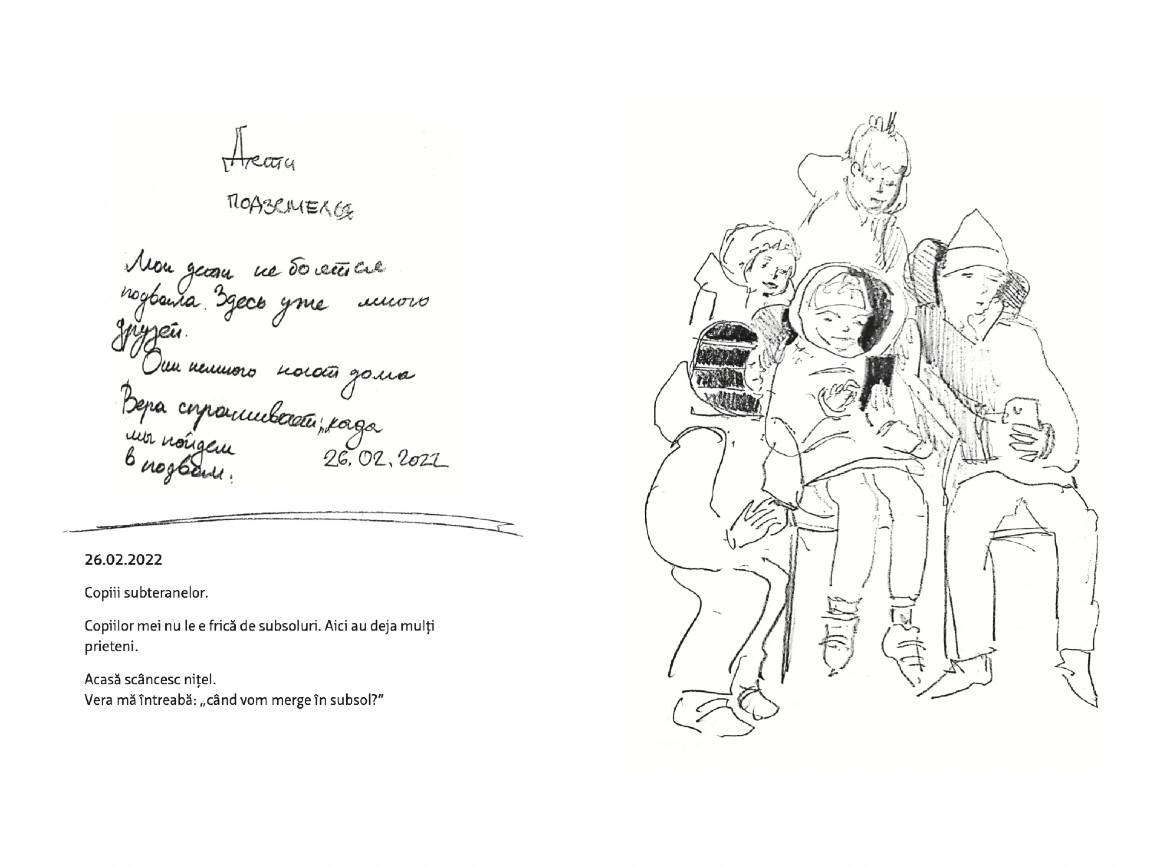 Дети
подземелья
Мои дети не боятся
подвала. Здесь уже много
друзей.
Они немного ноют дома
Вера спрашивает: „когда
мы пойдем
в подвал.
26.02.2022
26.02.2022
Copiii subteranelor.
Copiilor mei nu le e frică de subsoluri. Aici au deja mulți
prieteni.
Acasă scâncesc nițel.
Vera mă întreabă: „când vom merge în subsol?”